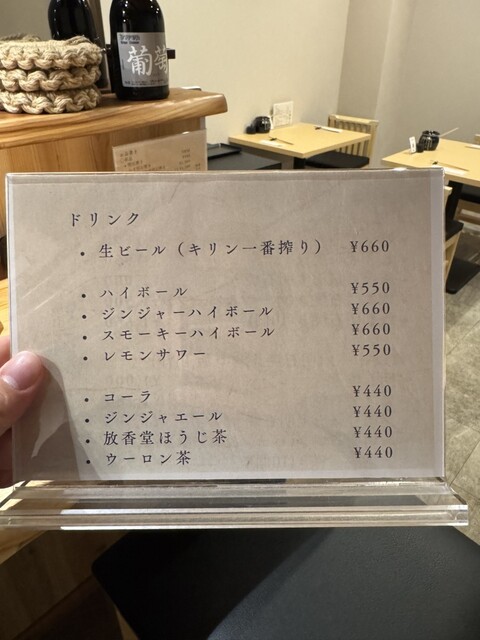 葡萄
ドリンク
・生ビール（キリン一番搾り） ¥660
・ハイボール ¥550
・ジンジャーハイボール ¥660
・スモーキーハイボール ¥660
・レモンサワー ¥550
・コーラ ¥440
・ジンジャエール ¥440
・放香堂ほうじ茶 ¥440
・ウーロン茶 ¥440